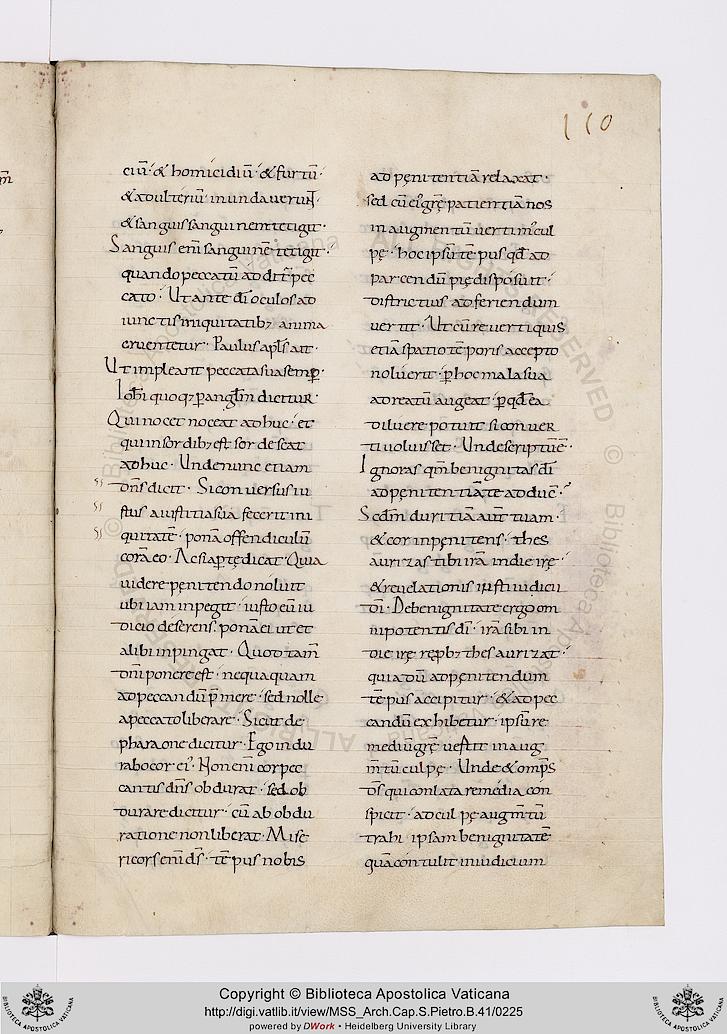 110
ciū · & homicidiū · & furtū ·
& adulteriū inundaverunt̄ ·
& sanguis sanguinem tetigit ·
Sanguis enī sanguinē tetigit ·
quando peccatū additr̄ pec
cato · Ut ante dī oculos ad
iunctis iniquitatib; anima
cruentetur · Paulus apl̄s ait ·
Ut impleant peccata sua semp̄ ·
Ioh̄i quoq; p angl̄m dicitur ·
Qui nocet noceat adhuc · et
qui in sordib; est sordescat
adhuc · Unde nunc etiam
dn̄s dicit · Si conversus iu
stus a iustitia sua fecerit ini
quitatē · ponā offendiculū
corā eo · Ac si apte dicat · Quia
videre penitendo noluit
ubi iam inpegit · iusto eū iu
dicio deserens · ponā ei ut et
alibi inpingat · Quod tam̄
dn̄i ponere est · nequaquam
ad peccandū p̄mere · sed nolle
a peccato liberare · Sicut de
pharaone dicitur · Ego indu
rabo cor ei᾿ · Non enī cor pec
cantis dn̄s obdurat · sed ob
durare dicitur · cū ab obdu
ratione non liberat · Mise
ricors enī ds̄ · tēpus nobis
ad penitentiā relaxat ·
sed cū ei᾿ grē patientiā nos
in augmentū vertim᾿ cul
pe · hoc ipsū tēpus qd̄ ad
parcendū pie disposuit ·
districtius ad feriendum
vertit · Ut cū reverti quis
etiā spatio tēporis accepto
noluerit · p hoc mala sua
ad reatū augeat · p qd̄ ea
diluere potuit si conver
ti voluisset · Unde scriptū ē ·
Ignoras qm̄ benignitas dī
ad penitentiā te adducē ·
Scdm̄ duritiā aut̄ tuam ·
& cor inpenitens · thes
aurizas tibi irā in die ire ·
& revelationis iusti iudicii
dī · De benignitate ergo om
nipotentis dī · irā sibi in
die ire reprob; thesaurizat ·
quia dū ad penitendum
tēpus accipitur · & ad pec
candū exhibetur · ipsū re
mediū grē vertit in aug
m̄tū culpe · Unde & omps̄
ds̄ qui conlata remedia con
spicit · ad culpe augm̄tū
trahi · ipsam benignitatē
quā contulit in iudicium
Copyright © Biblioteca Apostolica Vaticana
http://digi.vatlib.it/view/MSS_Arch.Cap.S.Pietro.B.41/0225
powered by DWork • Heidelberg University Library